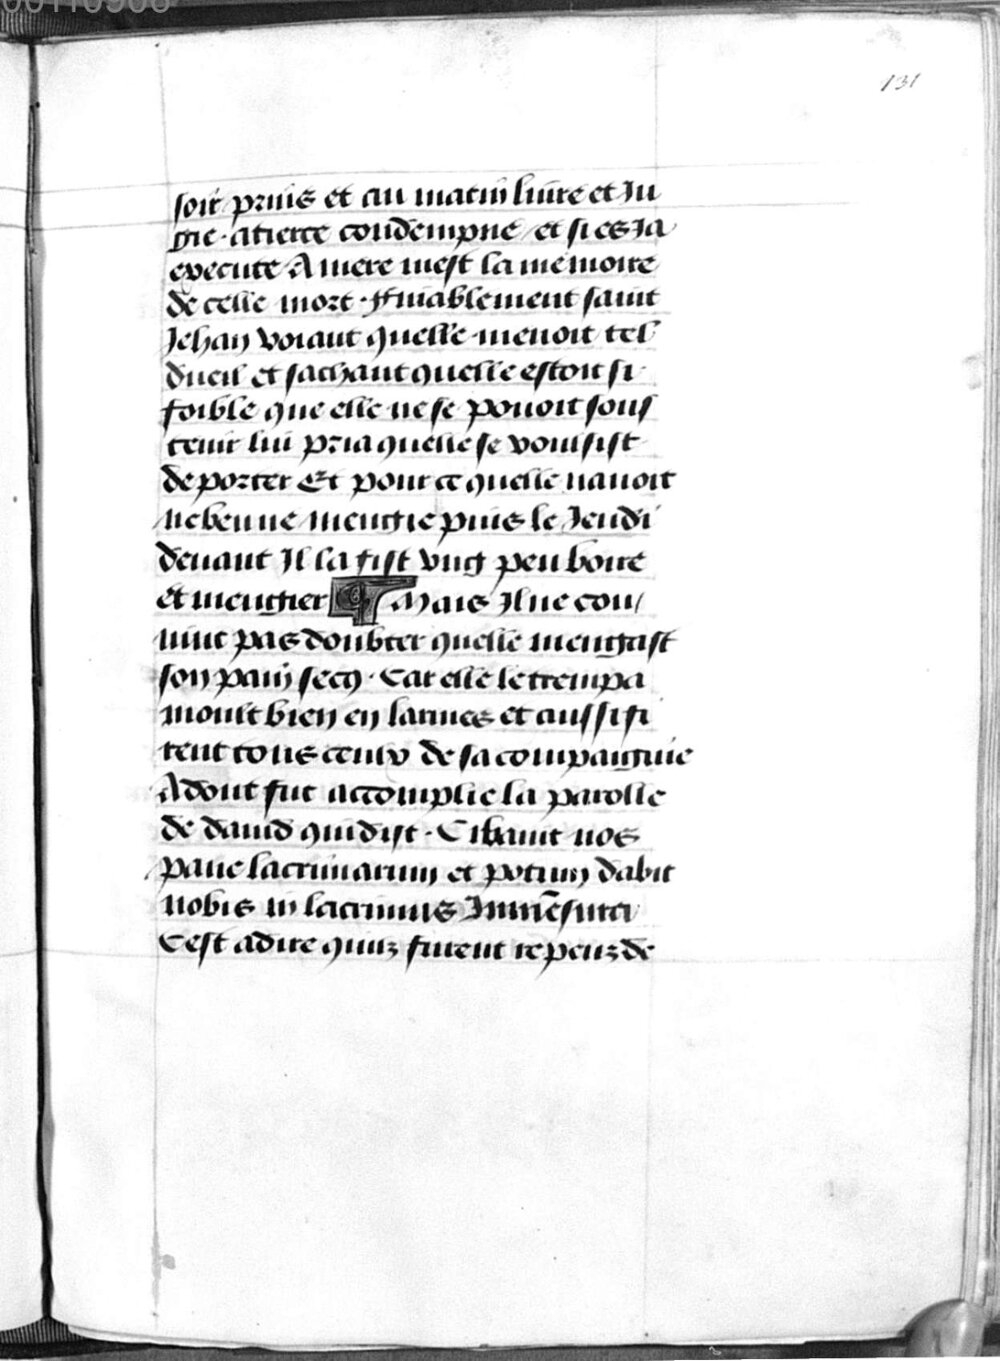 131
soir prins et au matin liure et Ju
gie · a tierce condempne et si es Ja
execute A mere mest la memoire
de celle mort · Finablement saint
Jehan voiant quelle menoit tel
dueil et sachant quelle estoit si
foible que elle ne se pouoit sous
tenir lui pria quelle se voulsist
deporter Et pour ce quelle nauoit
ne beu ne mengie puis le Jeudi
deuant Il la fist vng peu boire
et mengier Mais Il ne con/
uint pas doubter quelle mengast
son pain secq · Car elle le trempa
moult bien en larmes et aussi fi
rent tous ceulx de sa compaignie
Adont fut accomplie la parolle
de dauid qui dist · Cibauit nos
pane lacrimarum et potum dabit
nobis in lacrimis In mēsura
Cest a dire quilz furent repeuz de